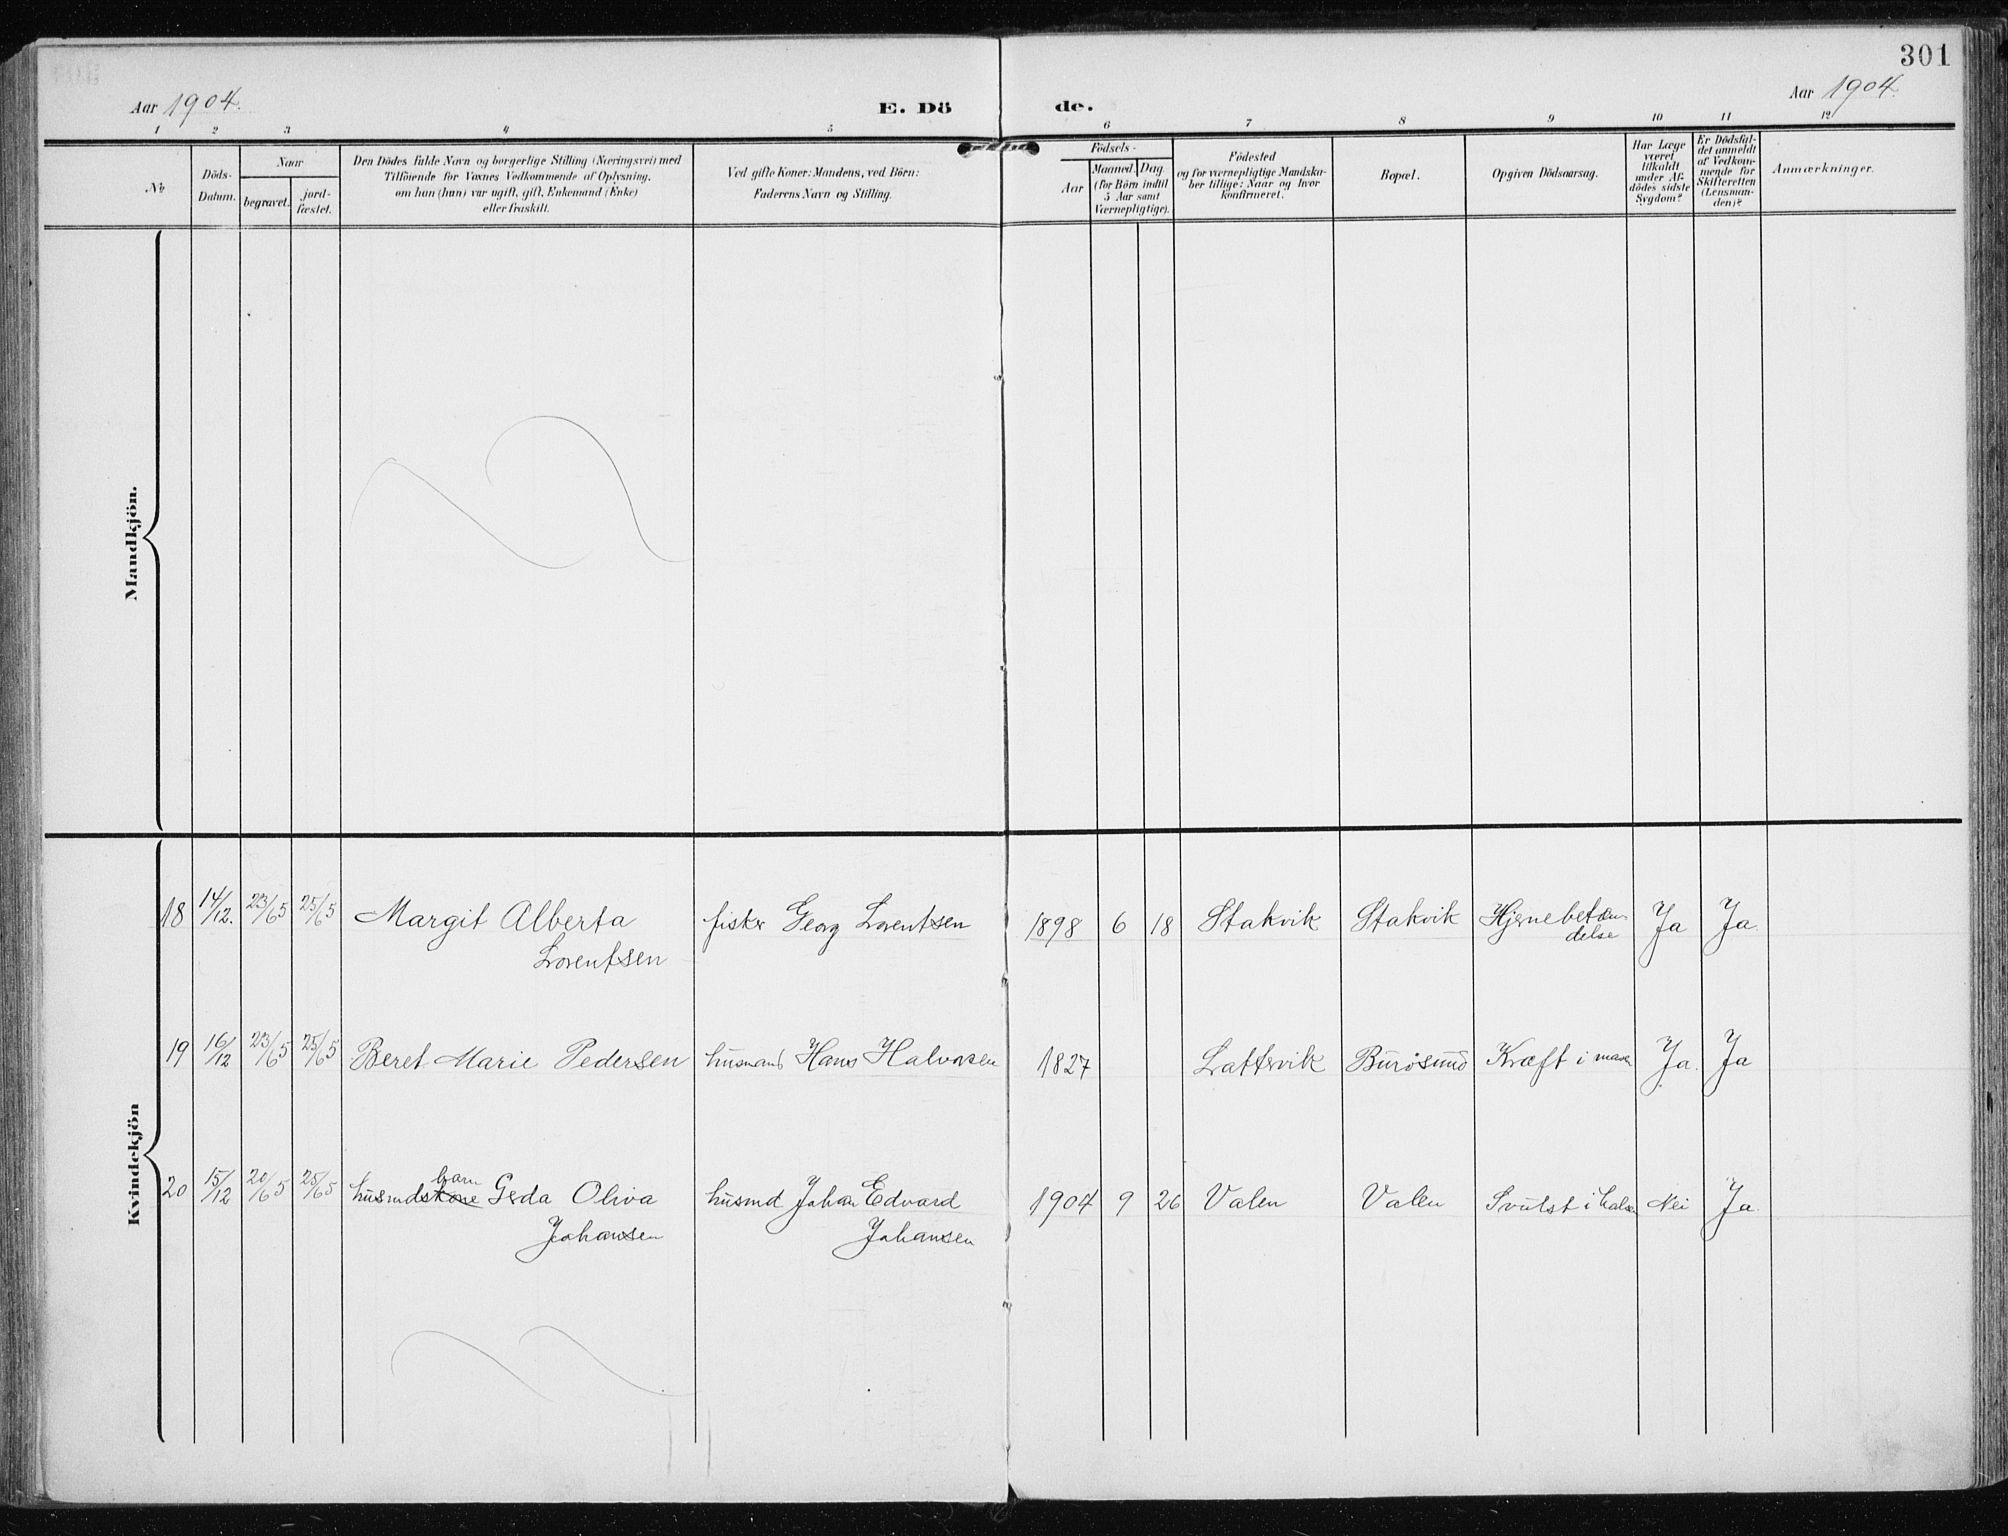 301
Aar 1904.
E. Dö de.
Aar 1904.
1 2 3 4 5 6 7 8 9 10 11 12
No
Döds-
Datum.
Naar
begravet.
jord-
fæstet.
Den Dödes fulde Navn og borgerlige Stilling (Næringsvei) med
Tilföiende for Voxnes Vedkommende af Oplysning,
om han (hun) var ugift, gift, Enkemand (Enke)
eller fraskilt.
Ved gifte Koner: Mandens, ved Börn:
Faderens Navn og Stilling.
Födsels-
Aar
Maaned. Dag
(for Börn indtil
5 Aar samt
Værnepligtige).
Födested
og for værnepligtige Mandska-
ber tillige: Naar og hvor
konfirmeret.
Bopæl.
Opgiven Dödsaarsag.
Har Læge
været
tilkaldt
under Af-
dödes sidste
Sygdom?
Er Dödsfal-
det anmeldt
af Vedkom-
mende for
Skifteretten
(Lensman-
den)?
Anmærkninger.
Mandkjön.
Kvindekjön
18 14/12. 23/65 25/65 Margit Alberta fisker Georg Lorentsen 1898 6 18 Stakvik Stakvik Hjernebetæn- Ja Ja.
Lorentsen delse
19 16/12 23/65 25/65 Beret Marie Pedersen husmand Hans Halvorsen 1827 Lattervik Burøsund Kræft i maven Ja. Ja
barn
20 15/12 20/65 25/65 husmdskone Geda Oliva husmd Johan Edvard 1904 9 26 Valen Valen Svulst i halsen Nei Ja.
Johansen Johansen